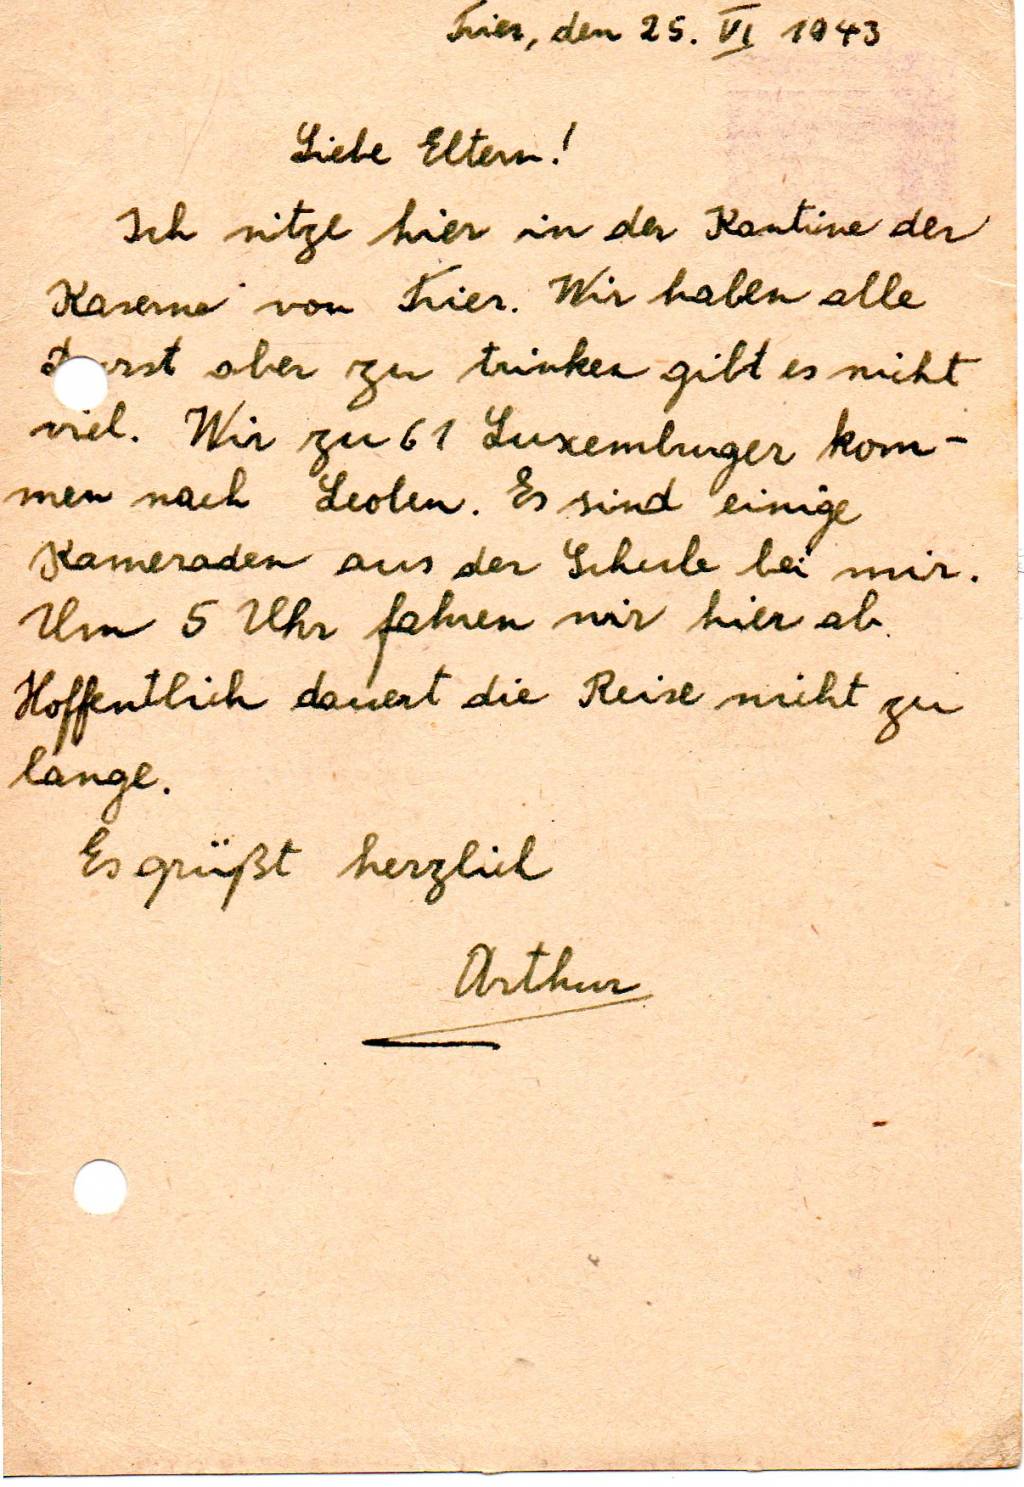 Trier, den 25. VI 1943
Liebe Eltern!
Ich sitze hier in der Kantine der
Kaserne von Trier. Wir haben alle
Durst aber zu trinken gibt es nicht
viel. Wir zu 61 Luxemburger kom-
men nach Leoben. Es sind einige
Kameraden aus der Schule bei mir.
Um 5 Uhr fahren wir hier ab.
Hoffentlich dauert die Reise nicht zu
lange.
Es grüßt herzlich
Arthur